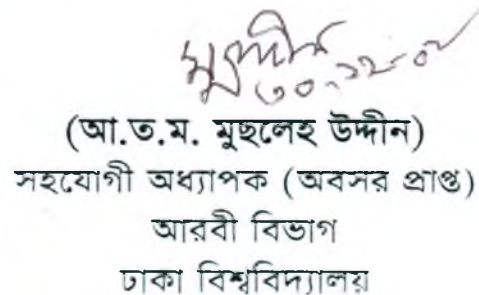 ৩০.১২.০৮
(আ.ত.ম. মুছলেহ উদ্দীন)
সহযোগী অধ্যাপক (অবসর প্রাপ্ত)
আরবী বিভাগ
ঢাকা বিশ্ববিদ্যালয়